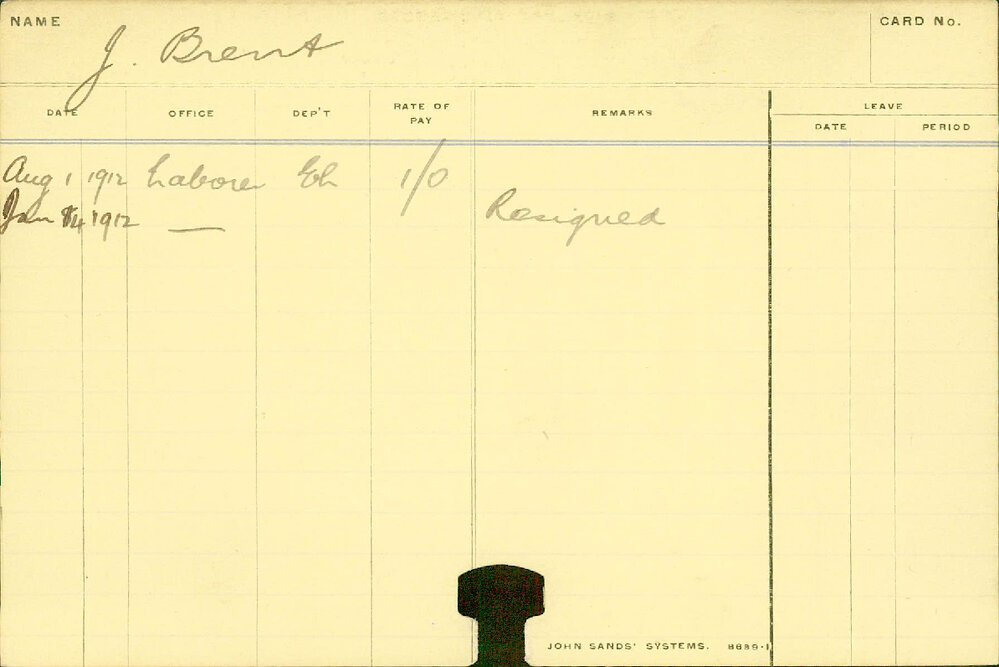 NAME
J. Brent
CARD No.
DATE OFFICE DEP'T RATE OF PAY REMARKS LEAVE
DATE PERIOD
Aug 1 1912 Laborer 1/0
Jan 1912 — Resigned
JOHN SANDS' SYSTEMS. 8689-1